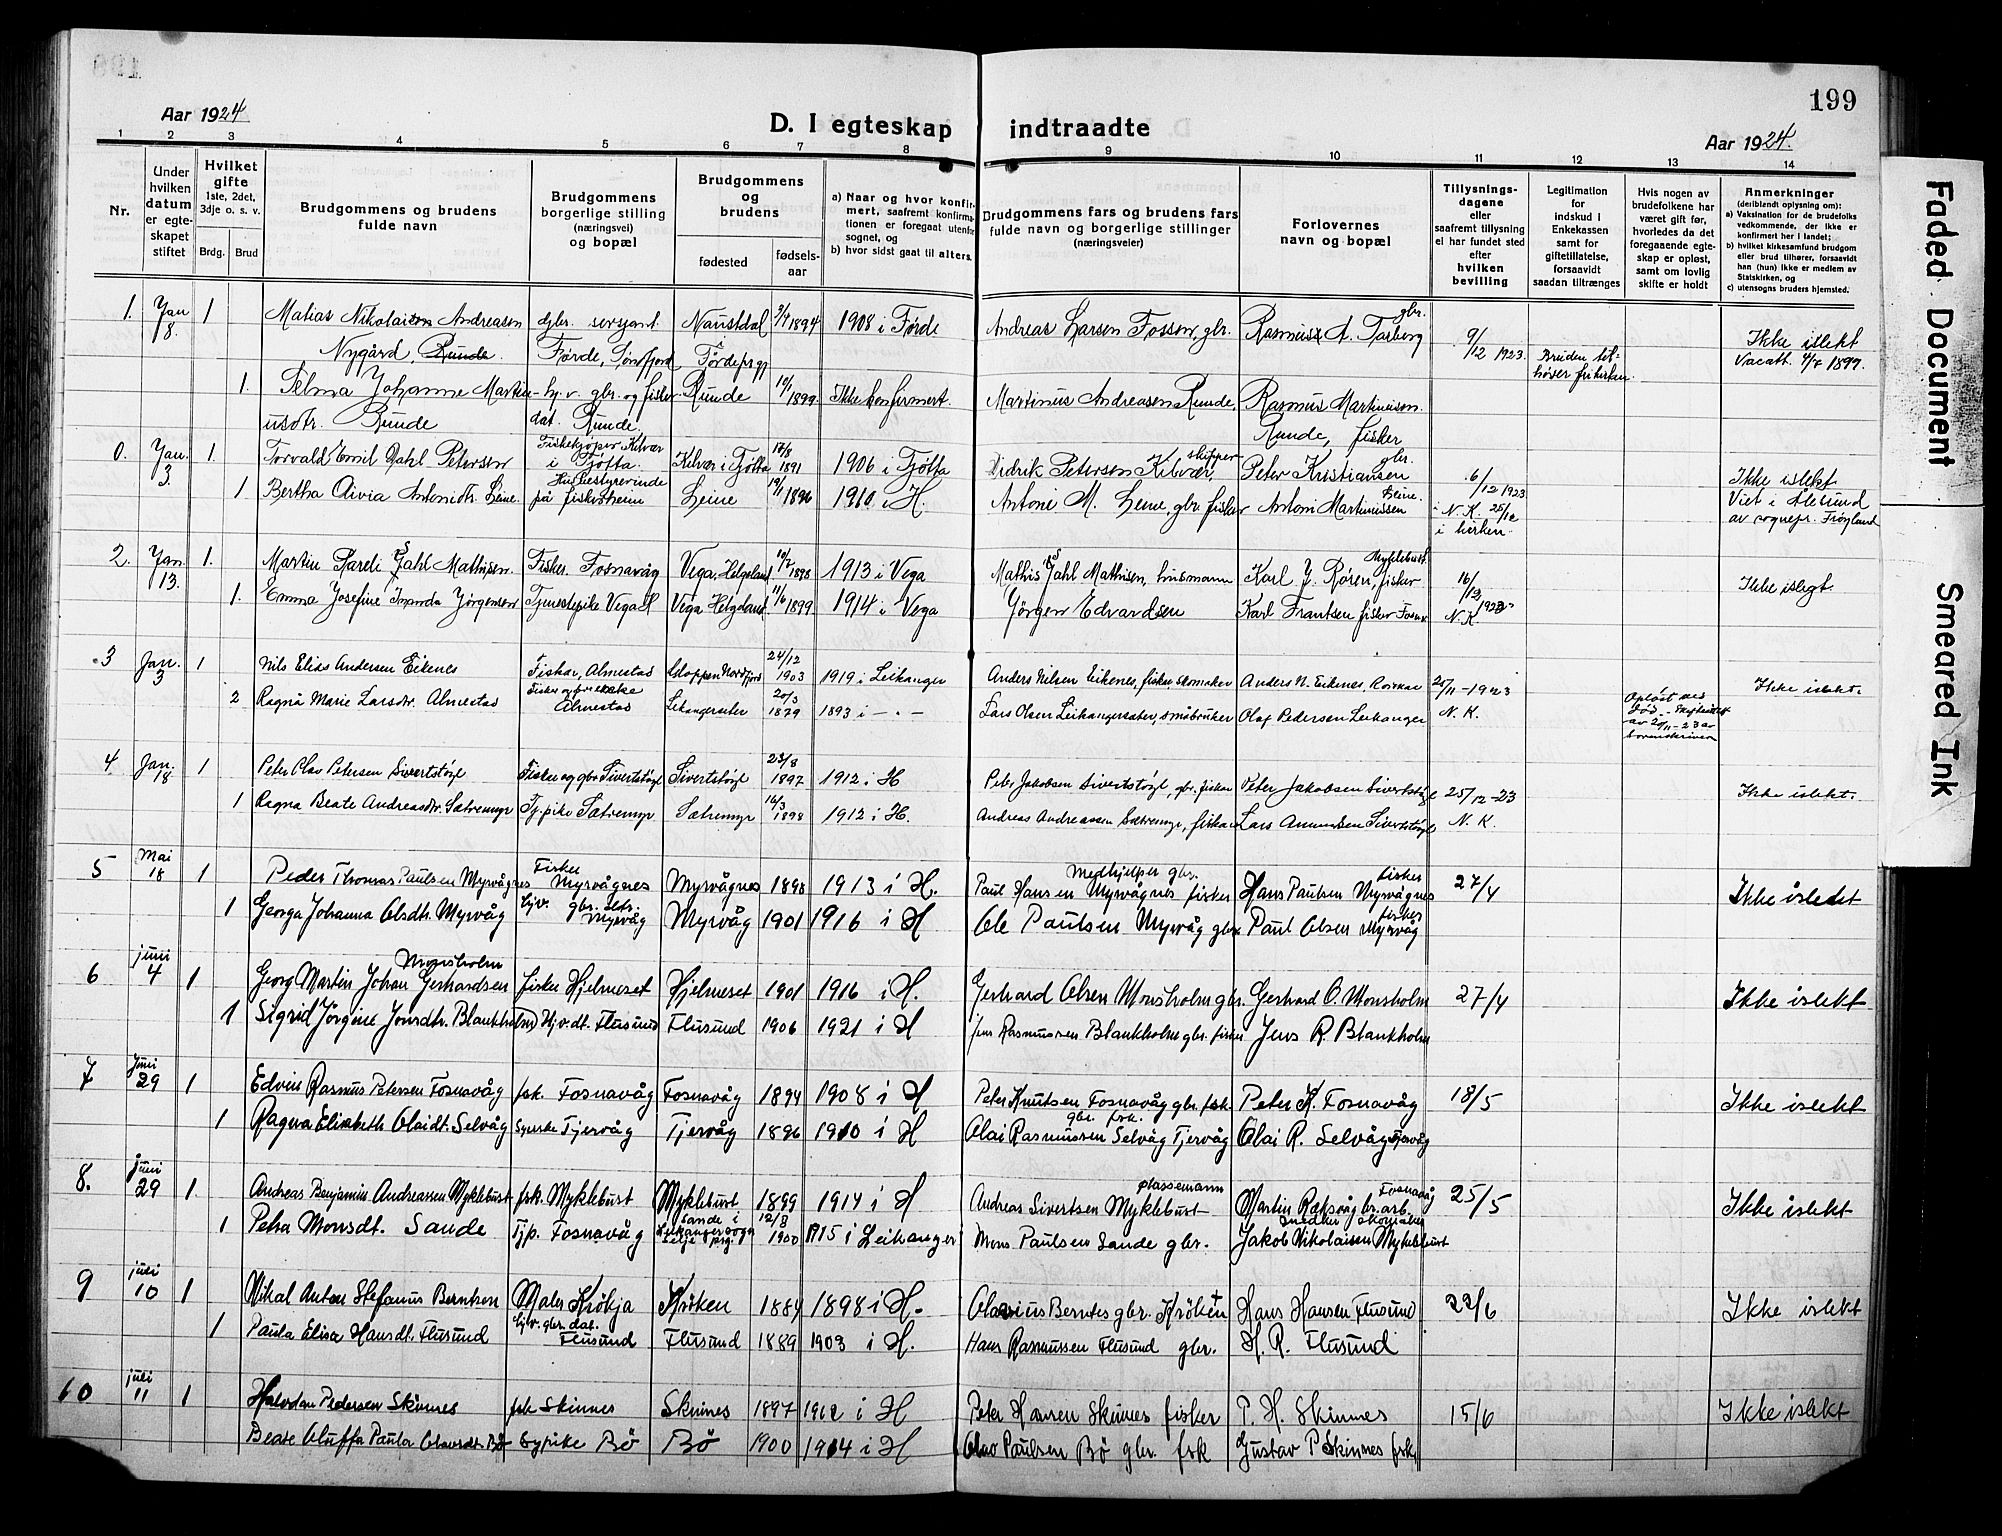 199
Aar 1924
D. I egteskap indtraadte
Aar 1924.
1 2 3 4 5 6 7 8 9 10 11 12 13 14
Nr.
Under hvilken datum er egteskapet stiftet
Hvilket gifte 1ste, 2det, 3dje o. s. v.
Brdg. Brud
Brudgommens og brudens fulde navn
Brudgommens borgerlige stilling (næringsvei) og bopæl
Brudgommens og brudens
fødested
fødselsaar
a) Naar og hvor konfirmert, saafremt konfirmationen er foregaat utenfor sognet, og
b) hvor sidst gaat til alters.
Brudgommens fars og brudens fars fulde navn og borgerlige stillinger (næringsveier)
Forlovernes navn og bopæl
Tillysningsdagene eller saafremt tillysning ei har fundet sted efter hvilken bevilling
Legitimation for indskud i Enkekassen samt for giftetillatelse, forsaavidt saadan tiltrænges
Hvis nogen av brudefolkene har været gift før, hvorledes da det foregaaende egteskap er opløst, samt om lovlig skifte er holdt
Anmerkninger (deriblandt oplysning om):
a) Vaksination for de brudefolks vedkommende, der ikke er konfirmert her i landet;
b) hvilket kirkesamfund brudgom eller brud tilhører, forsaavidt han (hun) ikke er medlem av Statskirken, og
c) utensogns bruders hjemsted.
1. Jan 8. 1 Matias Nikolaison Andreasen gbr. sersjant. Naustdal 1894 1908 i Førde Andreas Larsen Fossen, gbr. Rasmus A. Tarberg gbr. 9/12 1923. Bruden tilhører frikirken Ikke islekt
Nygård, Runde. Førde, Sunfjord Førde prgj. Vacatt. 1899.
1. Selma Johanne Martinusdtr. Runde hj. v. gbr. og fisker dat. Runde. Runde 1899 Ikke konfirmert. Martinus Andreasen Runde, Rasmus Martinusen Runde, fisker
0. Jan. 3. 1. Torvald Emil Dahl Petersen Fiskekjøper Kilvær i Tjøtta. Kilvær i Tjøtta 17/8 1891 1906 i Tjøtta Didrik Petersen Kilvær, skipper Peter Kristiansen gbr. 6/12 1923 Ikke islekt
1 Bertha Oivia Antonidtr. Leine. Husbestyrerinde på fiskerheim Leine 19/11 1896 1910 i H. Antoni M. Leine, gbr. fisker Antoni Martinussen Leine. N. K. 25/12 i kirken. Viet i Ålesund av sognepr. Frøyland
2. Jan. 13. 1. Martin Pareli Dahl Mathisen. Fisker. Fosnavåg Vega, Helgeland 1898 1913 i Vega Mathis Dahl Mathisen, husmann Karl J. Røren, fisker Myklebust. 16/12 1923 Ikke islegt
1. Emma Josefine Jørgensen Tjenestepike Vega Vega Helgeland 11/6 1899 1914 i Vega Jørgen Edvardsen Karl Frantsen fisker Fosn. N. K.
3 Jan. 3 1 Nils Elias Andersen Eikenes Fisker, Almestad Gloppen Nordfjord 24/12 1903 1919 i Leikanger Anders Nilsen Eikenes, fisker, skomaker Anders N. Eikenes, 25/11 - 1923 Ikke islekt.
2 Ragna Marie Larsdtr. Almestad Fisker og br.enke Almestad Leikangersæter 20/3 1879 1893 i - " - Lars Olsen Leikangersæter, småbruker Olaf Pedersen Leikanger N. K. Opløst ved død.
4 Jan. 18 1 Peter Olav Petersen Sivertstøyl Fisker og gbr Sivertstøyl Sivertstøyl 23/8 1897 1912 i H Peter Jakobsen Sivertstøyl, gbr. fisker Peter Jakobsen Sivertstøyl 25/12-23 Ikke islekt.
1 Ragna Beate Andreasdtr. Sætremyr Tj. pike Sætremyr Sætremyr 16/3 1898 1912 i H. Andreas Andreassen Sætremyr, fisker Lars Amundsen Sivertstøyl N. K.
5 Mai 18 1 Peder Thomas Paulsen Myrvågnes Fisker Myrvågnes Myrvågnes 1890 1913 i H. Paul Hansen Myrvågnes fisker Medhjelper gbr. Hans Paulsen Myrvågnes fisker 27/4 Ikke islekt
1 Georga Johanna Olsdtr. Myrvåg hjv. gbr. dtr. Myrvåg Myrvåg 1901 1916 i H Ole Paulsen Myrvåg gbr Paul Olsen Myrvåg fisker
6 juni 4 1 Georg Martin Johan Gerhardsen Monsholm fisker Hjelmeset Hjelmeset 1901 1916 i H. Gerhard Olsen Monsholm gbr. Gerhard O. Monsholm 27/4 Ikke islekt
1 Sigrid Jørgine Jensdtr. Blankholm Hjv. dt. Flusund Flusund 1906 1921 i H Jens Rasmussen Blankholm gbr. fisker Jens R. Blankholm
7 juni 29 1 Edvin Rasmus Petersen Fosnavåg fsk. Fosnavåg Fosnavåg 1894 1908 i H Peter Knutsen Fosnavåg gbr. fsk Peter K. Fosnavåg 18/5 Ikke islekt
1 Ragna Elisabeth Olaidt. Selvåg syerske Tjervåg Tjervåg 1896 1910 i H Olai Rasmussen Selvåg Tjervåg gbr. fsk. Olai R. Selvåg Tjervåg
8. juni 29 1. Andreas Benjamin Andreassen Myklebust fsk. Myklebust Myklebust 1899 1914 i H Andreas Sivertsen Myklebust plassemann Martin Fosnavåg 25/5 Ikke islekt
1 Petra Monsdt. Sande Tjp. Fosnavåg Sande i Leikanger sogn Selje prg. 12/8 1900 1915 i Leikanger Mons Paulsen Sande gbr. Jakob Nikolaisen Myklebust
9 juli 10 1 Mikal Anton Stefanus Berntsen Maler Krökja Kröken 1884 1898 i H. Olavius Berntes gbr. Kröken + Hans Hansen Flusund 22/6 Ikke islekt
1 Paula Elisa Hansdt. Flusund hjv. gbr. dat. Flusund Flusund 1889 1903 i H. Hans Rasmussen Flusund gbr. H. R. Flusund
10 juli 11 1 Halvdan Pedersen Skinnes fsk Skinnes Skinnes 1897 1912 i H Peter Hansen Skinnes fisker P. H. Skinnes 15/6 Ikke islekt
Beate Oluffa Paula Olavsdt. Bö tj. pike Bö Bö 1900 1914 i H Olav Paulsen Bö gbr. fsk Gustav P Skinnes fsk.
Faded Document
Smeared Ink